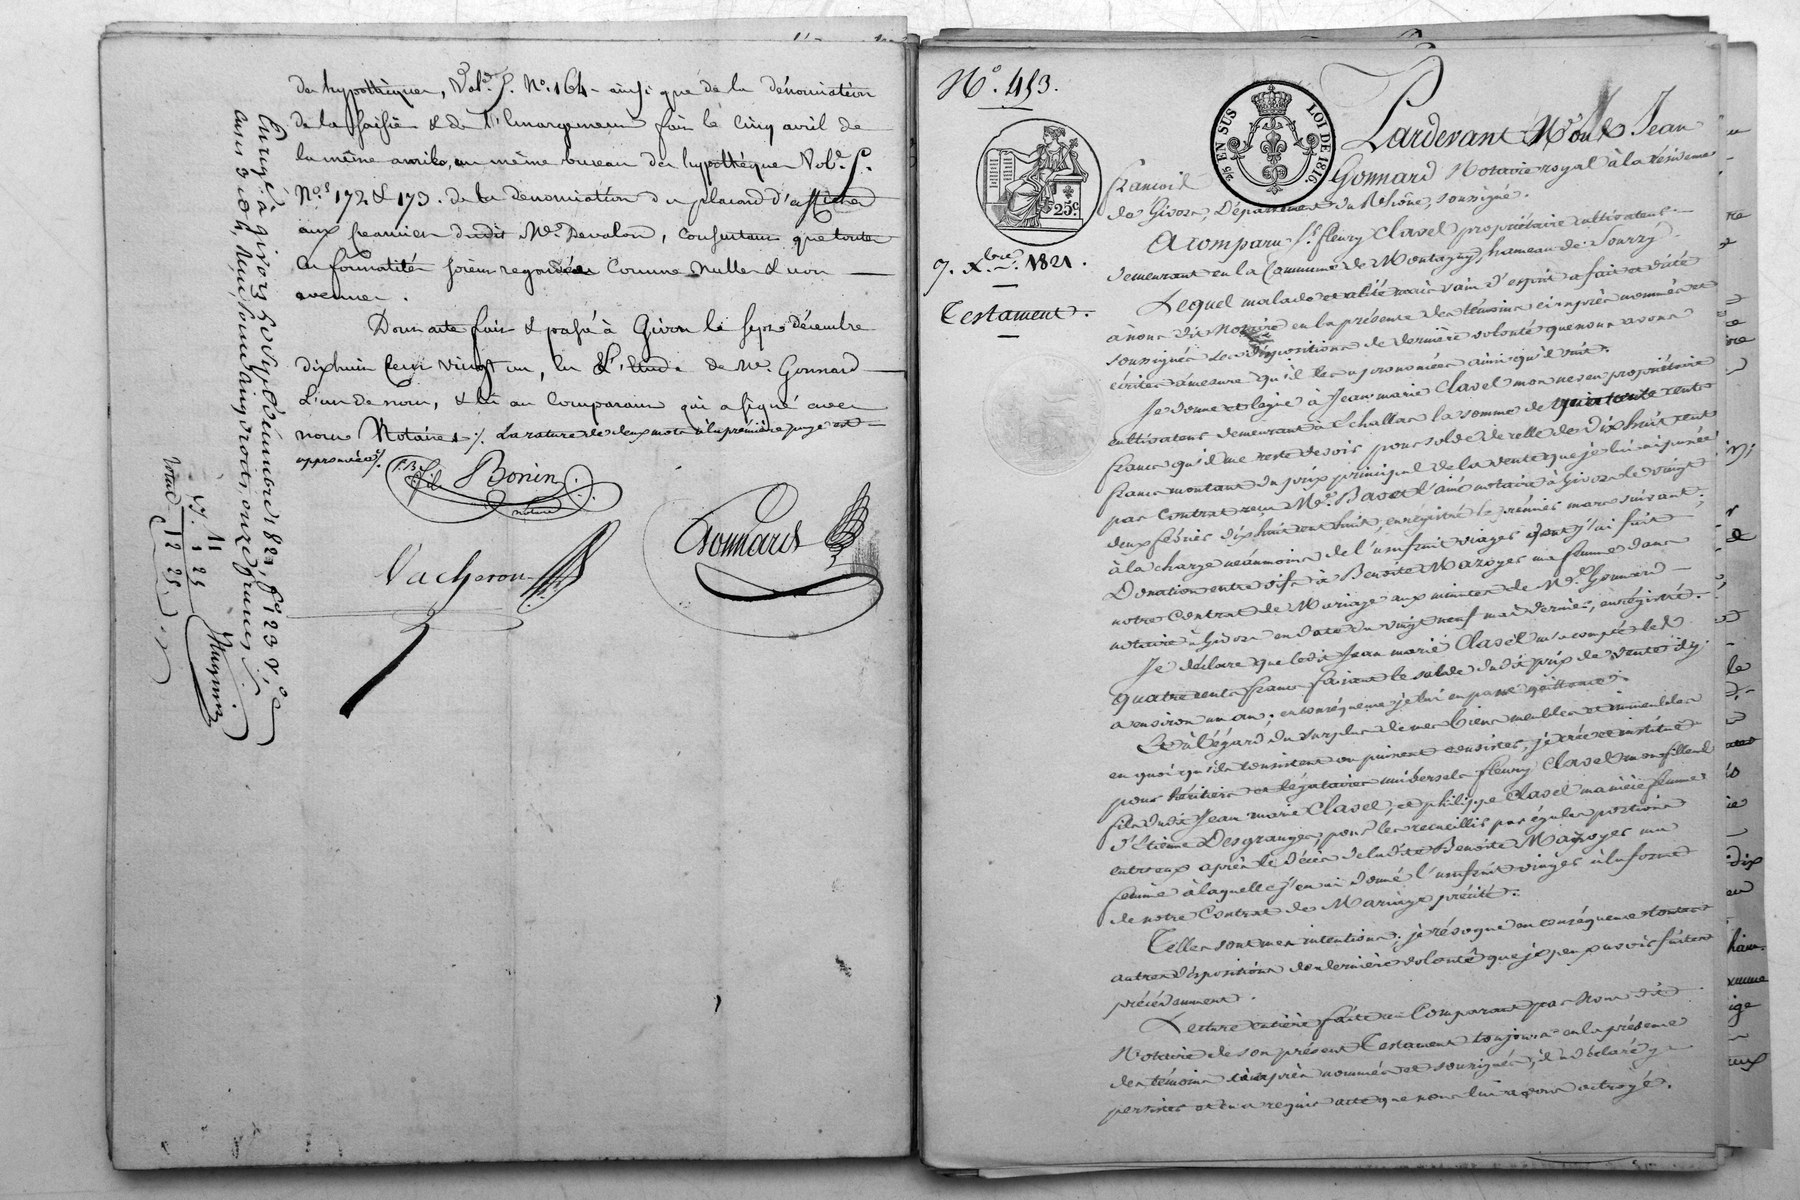 des hypothèques, Vol.e 5. N.o 164 ainsi que de la dénonciation
de la saisie & de l'Emargement fait le cinq avril de
la même année, au même bureau des hypothèques Vol.e 5.
N.os 172 & 173. de la dénonciation du placard d'affiche
aux créanciers dudit Mr. Devalon, consentant que toutes
ces formalités soient regardées comme nulles & non
avenues.
Dont acte fait & passé à Givors le sept décembre
dix huit cent vingt un, en L'Etude de Me. Gonnard
L'un de nous, & lu au comparant qui a signé avec
nous Notaires ./. La rature de deux mots à la première page est
approuvée ./.
F. B. fils Bonin
notaire
Vacheron
Gonnard
Enregé à givors le sept décembre 1821, f.o 123 v.o
Reçu, Pour vingt droits, onze francs
11
1 25
12 25
N.o 453.
25c.
7. Xbre 1821.
Testament.
25c EN SUS
LOI DE 1816.
Pardevant Nous Jean
francois Gonnard Notaire royal à la résidence
de Givors, Département du Rhône, soussigné.
A comparu Sr. fleury Clavel propriétaire cultivateur
demeurant en la Commune de Montagny, hameau de Sourzy
Lequel malade et alité mais sain d'esprit a fait et dicté
à nous dit Notaire en la présence des témoins ci après nommés et
soussignés ses dispositions de dernière volonté que nous avons
écrites à mesure qu'il les a prononcées ainsi qu'il suit.
Je donne et lègue à Jean marie Clavel mon neveu propriétaire
cultivateur demeurant à Echallas la somme de quatre cents
francs qu'il me reste devoir pour solde de celle de Dix huit cent
francs montant du prix principal de la vente que je lui ai passée
par Contrat reçu Me. Bavet l'ainé notaire à Givors le vingt
deux février dix huit cent huit, enregistré le premier mars suivant.
à la charge néanmoins de l'usufruit viager dont j'ai fait
Donation entre vifs à Benoite Mazoyer ma femme dans
notre Contrat de Mariage aux minutes de Me. Gonnard
notaire à Givors en date du vingt neuf mai dernier, enregistré.
Je déclare que ledit Jean marie Clavel m'a compté les
quatre cents francs faisant le solde dudit prix de vente il y
a environ un an; en conséquence je lui en passe quittance.
Et à l'égard du surplus de mes biens meubles et immeubles
en quoi qu'ils consistent ou puissent consister, je crée et institue
pour héritiers et légataires universels fleury Clavel mon filleul
fils dudit Jean marie Clavel, et philippe Clavel ma nièce femme
d'Etienne Desgranges, pour les recueillir par égales portions
entr'eux après le Décès de ladite Benoite Mazoyer ma
femme à laquelle j'en ai donné l'usufruit viager à la forme
de notre Contrat de Mariage précité.
Telles sont mes intentions; je révoque en conséquence toutes
autres dispositions de dernière volonté que je peux avoir faites
précédemment.
Lecture entière faite au Comparant par Nous dit
Notaire de son présent Testament toujours en la présence
des témoins ci après nommés et soussignés, il a déclaré y
persister et en a requis acte que nous lui avons octroyé.